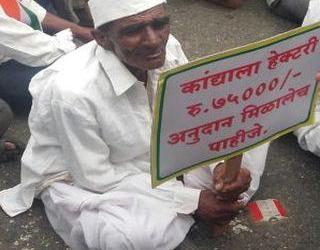 कांद्याला हेक्टरी
रु.७५०००/-
अनुदान मिळालेच
पाहीजे.